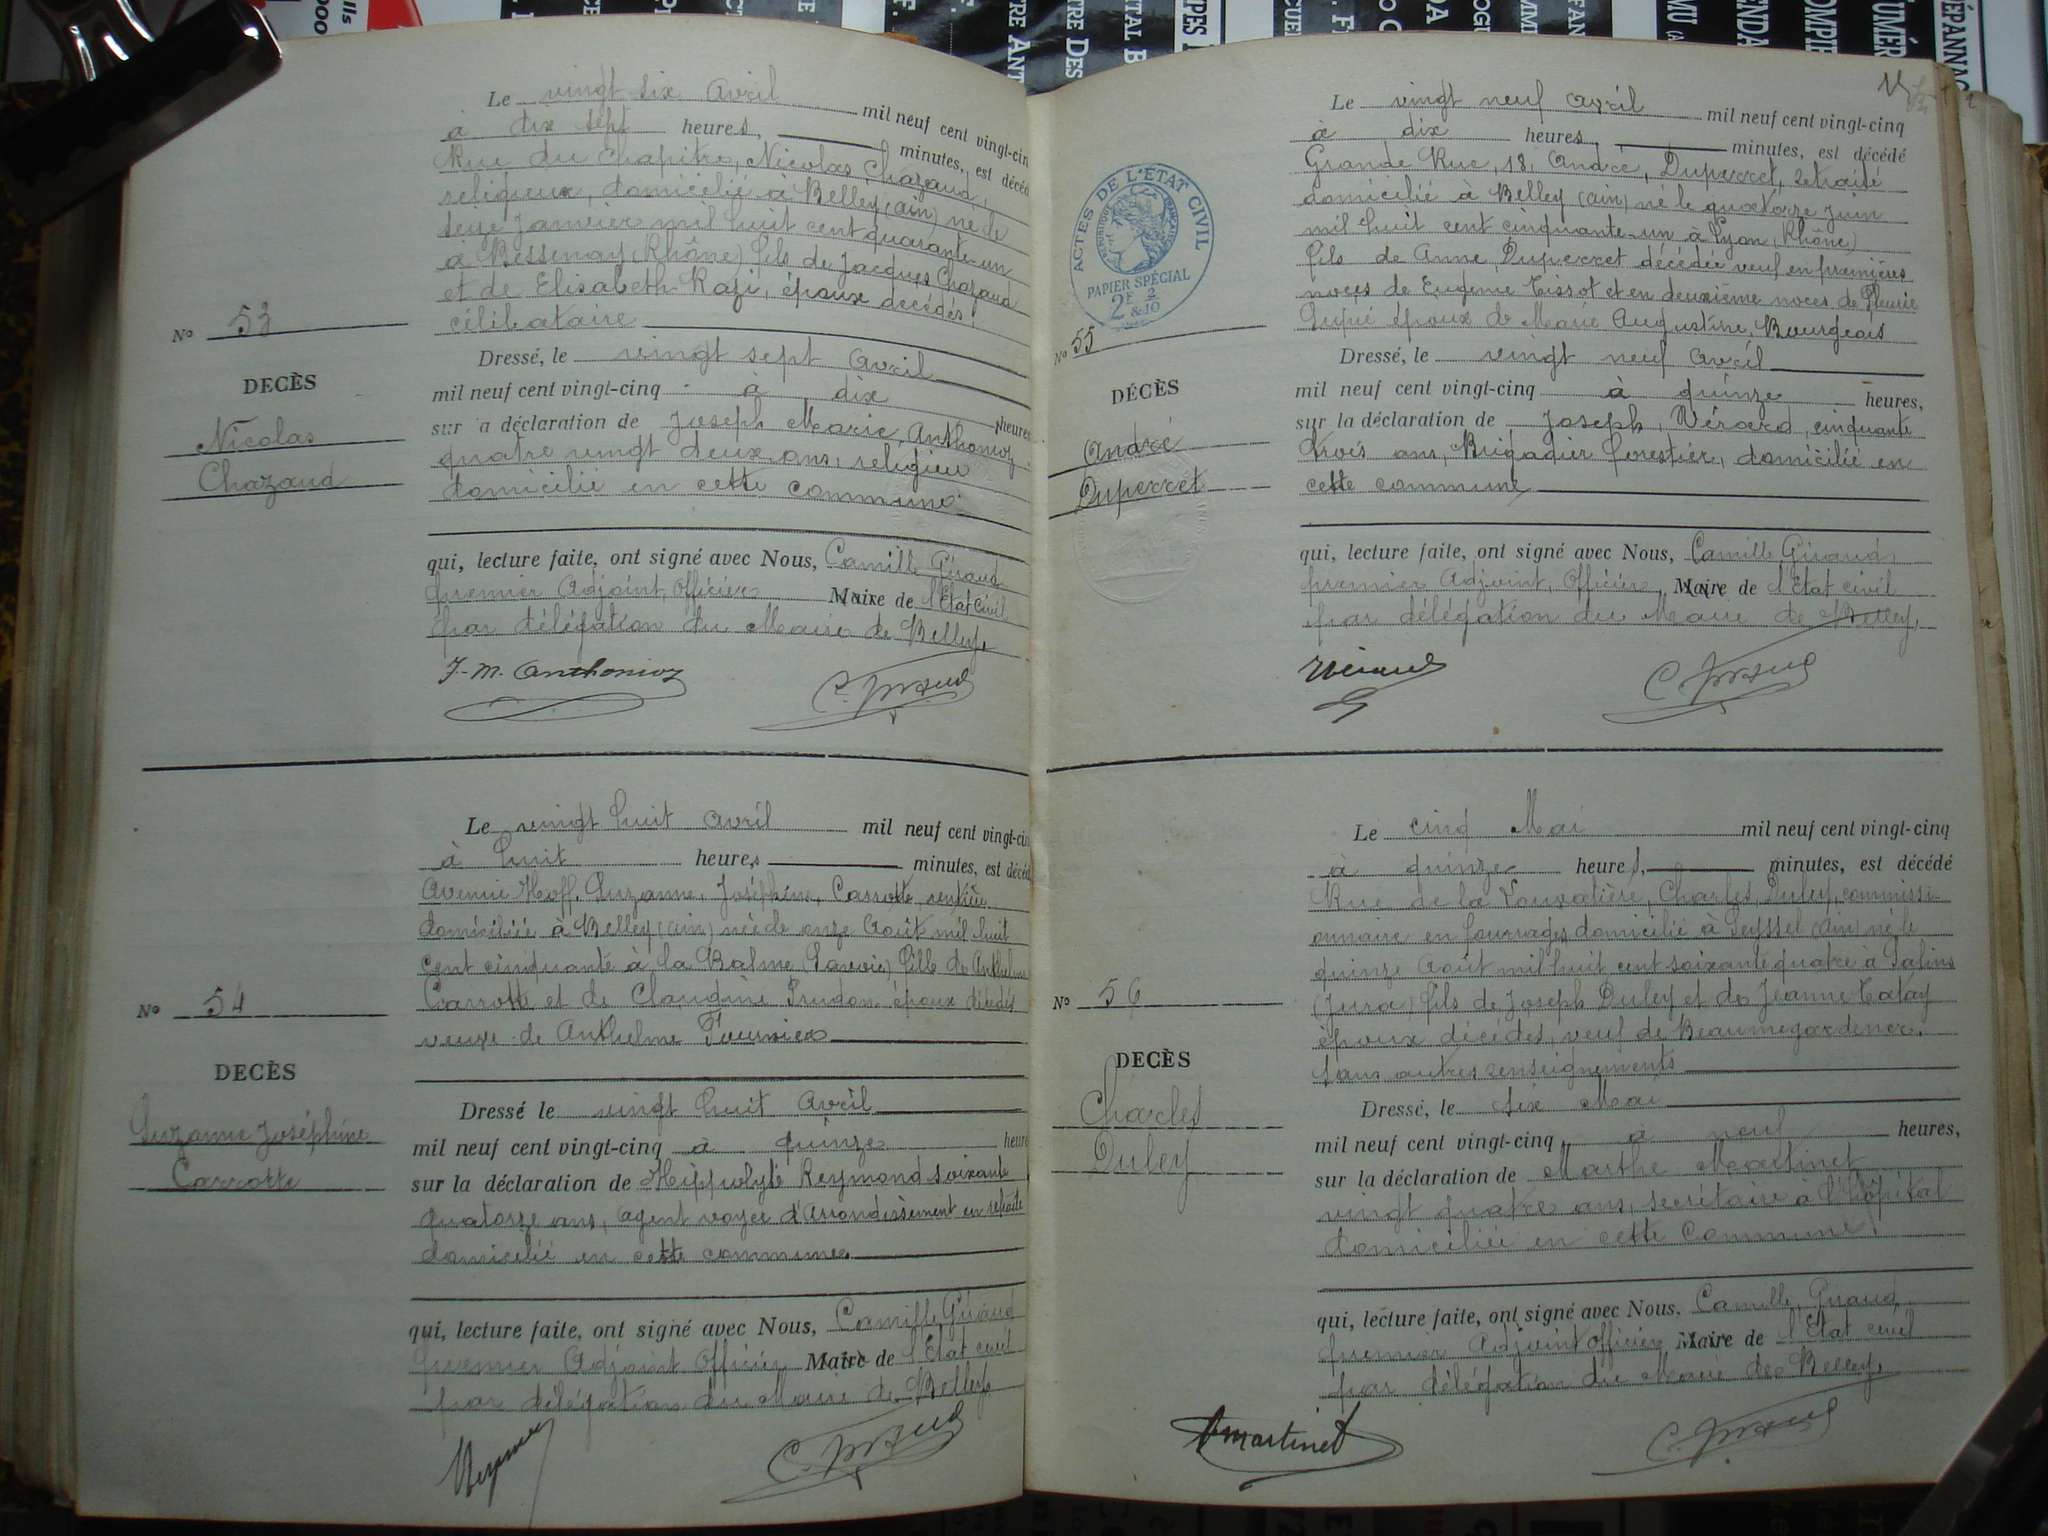 Le vingt six Avril mil neuf cent vingt-cin
à dix sept heures, minutes, est décéd
Rue du Chapitre, Nicolas Chazaud,
religieux, domicilié à Belley (ain) né le
seize Janvier mil huit cent quarante-un
à Bessenay (Rhône) fils de Jacques Chazaud
et de Elisabeth Razi, époux décédés,
célibataire
No 53
DECÈS
Nicolas
Chazaud
Dressé, le vingt sept Avril
mil neuf cent vingt-cinq à dix heures
sur a déclaration de Joseph Marie, Anthonioz
quatre vingt deux ans, religieu
domicilié en cette commune
qui, lecture faite, ont signé avec Nous, Camille Giraud
premier Adjoint, Officier Maire de l'Etat civil
par délégation du Maire de Belley,
J-M. Anthonioz
C. Giraud
Le vingt huit Avril mil neuf cent vingt-cin
à huit heures minutes, est décéd
Avenue Hoff, Suzanne, Joséphine, Carrotte, rentière
domiciliée à Belley (ain) née le onze Août mil huit
cent cinquante à la Balme (Savoie) fille de Anthelme
Carrotte et de Claudine Prudon époux décédés
veuve de Anthelme Fournier
No 54
DECÈS
Suzanne Joséphine
Carrotte
Dressé le vingt huit Avril
mil neuf cent vingt-cinq à quinze heure
sur la déclaration de Hippolyte Reymond soixante
quatorze ans, agent voyer d'Arrondissement en retraite
domicilié en cette commune
qui, lecture faite, ont signé avec Nous, Camille Giraud
premier Adjoint Officier Maire de l'Etat civil
par délégation du Maire de Belley
Reymond
C. Giraud
Le vingt neuf Avril mil neuf cent vingt-cinq
à dix heures minutes, est décédé
Grande Rue, 18, André, Duperret, retraité
domicilié à Belley (ain) né le quatorze Juin
mil huit cent cinquante-un à Lyon (Rhône)
fils de Anne, Duperret décédée veuf en premières
noces de Eugénie Tissot et en deuxième noces de Fleurie
époux de Marie Augustine, Bourgeois
ACTES DE L'ETAT CIVIL
RÉPUBLIQUE FRANÇAISE
PAPIER SPÉCIAL
2F 2
&10
No 55
DÉCÈS
André
Duperret
Dressé, le vingt neuf Avril
mil neuf cent vingt-cinq à quinze heures,
sur la déclaration de Joseph, Vérard, cinquante
trois ans, Brigadier forestier, domicilié en
cette commune
qui, lecture faite, ont signé avec Nous, Camille Giraud,
premier Adjoint, Officier Maire de l'Etat civil
par délégation du Maire de Belley,
Vérard
C. Giraud
Le cinq Mai mil neuf cent vingt-cinq
à quinze heures, minutes, est décédé
Rue de la Louvatière, Charles, Duley, commissi-
onnaire en fourrages domicilié à Seyssel (Ain) né le
quinze Août mil huit cent soixante quatre à Salins
(Jura) fils de Joseph Duley et de Jeanne Tatay
époux décédés, veuf de Beaumegardener,
sans autres renseignements
No 56
DECÈS
Charles
Duley
Dressé, le six Mai
mil neuf cent vingt-cinq, à neuf heures,
sur la déclaration de Marthe Martinet
vingt quatre ans, secrétaire à l'hôpital
domiciliée en cette Commune,
qui, lecture faite, ont signé avec Nous, Camille, Giraud,
premier Adjoint Officier Maire de l'Etat civil
par délégation du Maire de Belley,
Martinet
C. Giraud